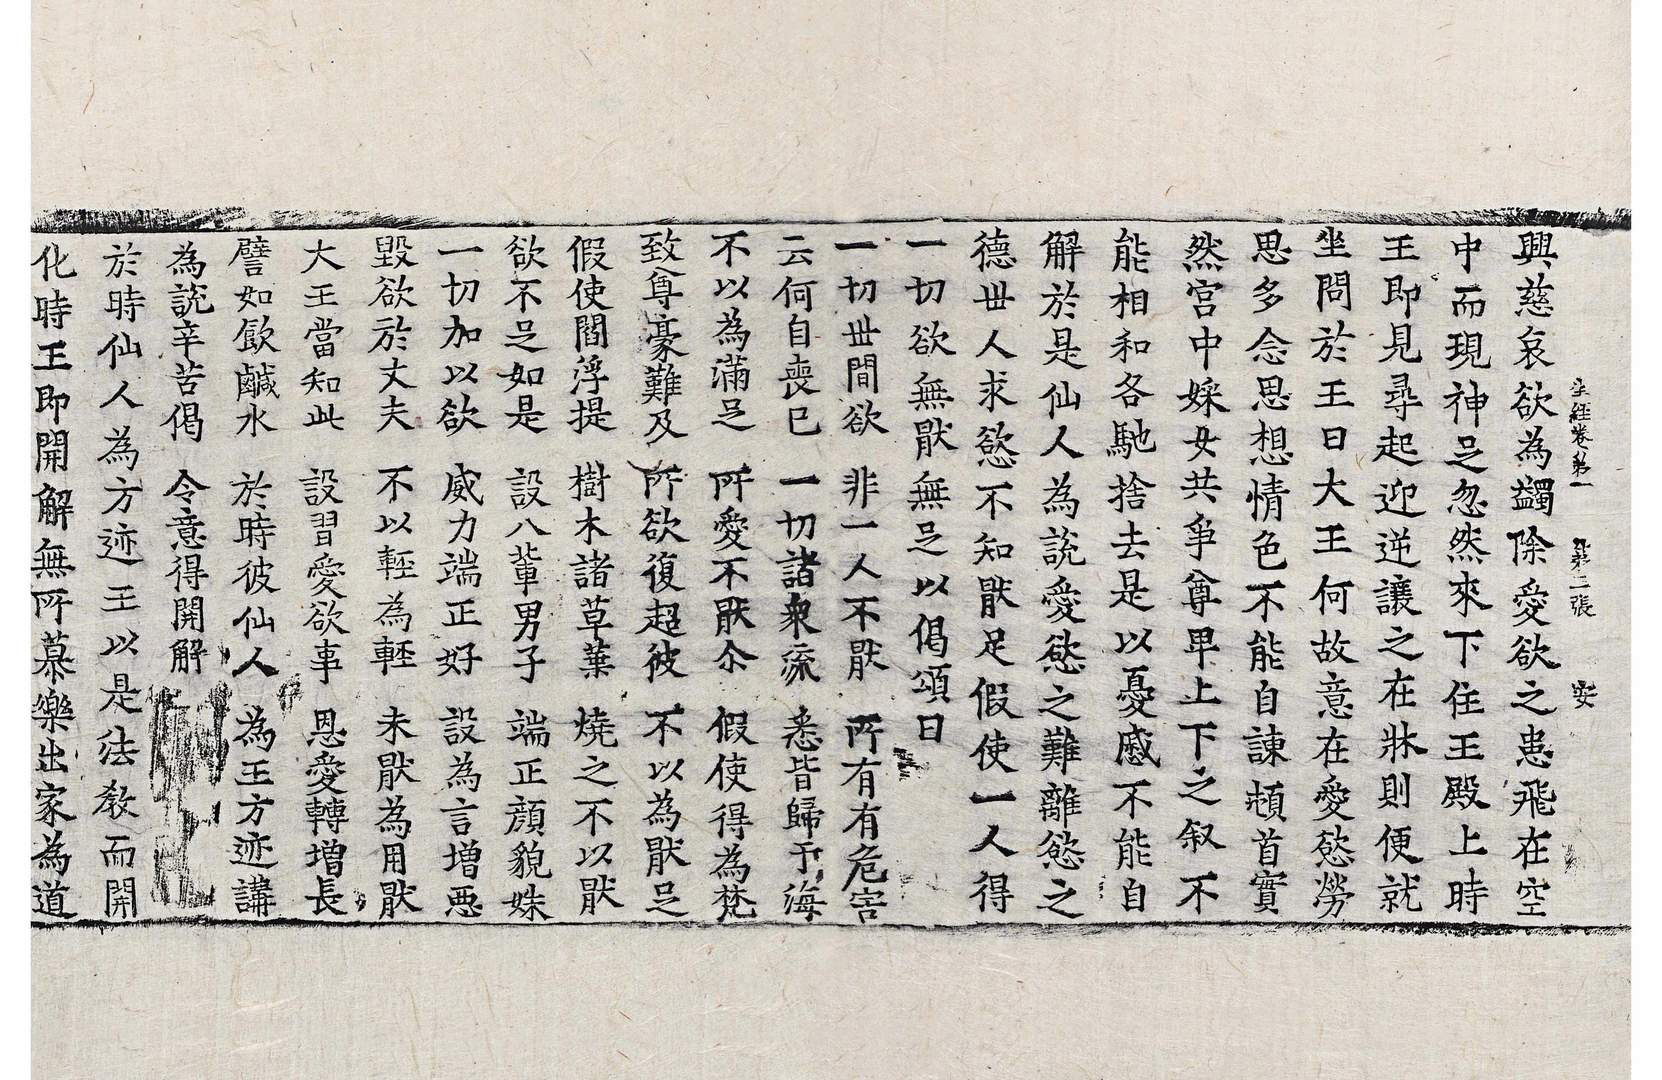 生經卷第一 第二張 安
興慈哀欲為蠲除愛欲之患飛在空
中而現神足忽然來下住王殿上時
王即見尋起迎逆讓之在牀則便就
坐問於王曰大王何故意在愛慾勞
思多念思想情色不能自諫頓首實
然宮中婇女共爭尊卑上下之叙不
能相和各馳捨去是以憂慼不能自
解於是仙人為說愛慾之難離慾之
德世人求慾不知猒足假使一人得
一切欲無猒無足以偈頌曰
一切世間欲 非一人不猒 所有有危害
云何自喪已 一切諸衆流 悉皆歸于海
不以為滿足 所愛不猒尒 假使得為梵
致尊豪難及 所欲復超彼 不以為猒足
假使閻浮提 樹木諸草葉 燒之不以猒
欲不足如是 設八輩男子 端正顏貌姝
一切加以欲 威力端正好 設為言增惡
毀欲於丈夫 不以輕為輕 未猒為用猒
大王當知此 設習愛欲事 恩愛轉增長
譬如飲鹹水 於時彼仙人 為王方迹講
為說辛苦偈 令意得開解
於時仙人為方迹王以是法教而開
化時王即開解無所慕樂出家為道